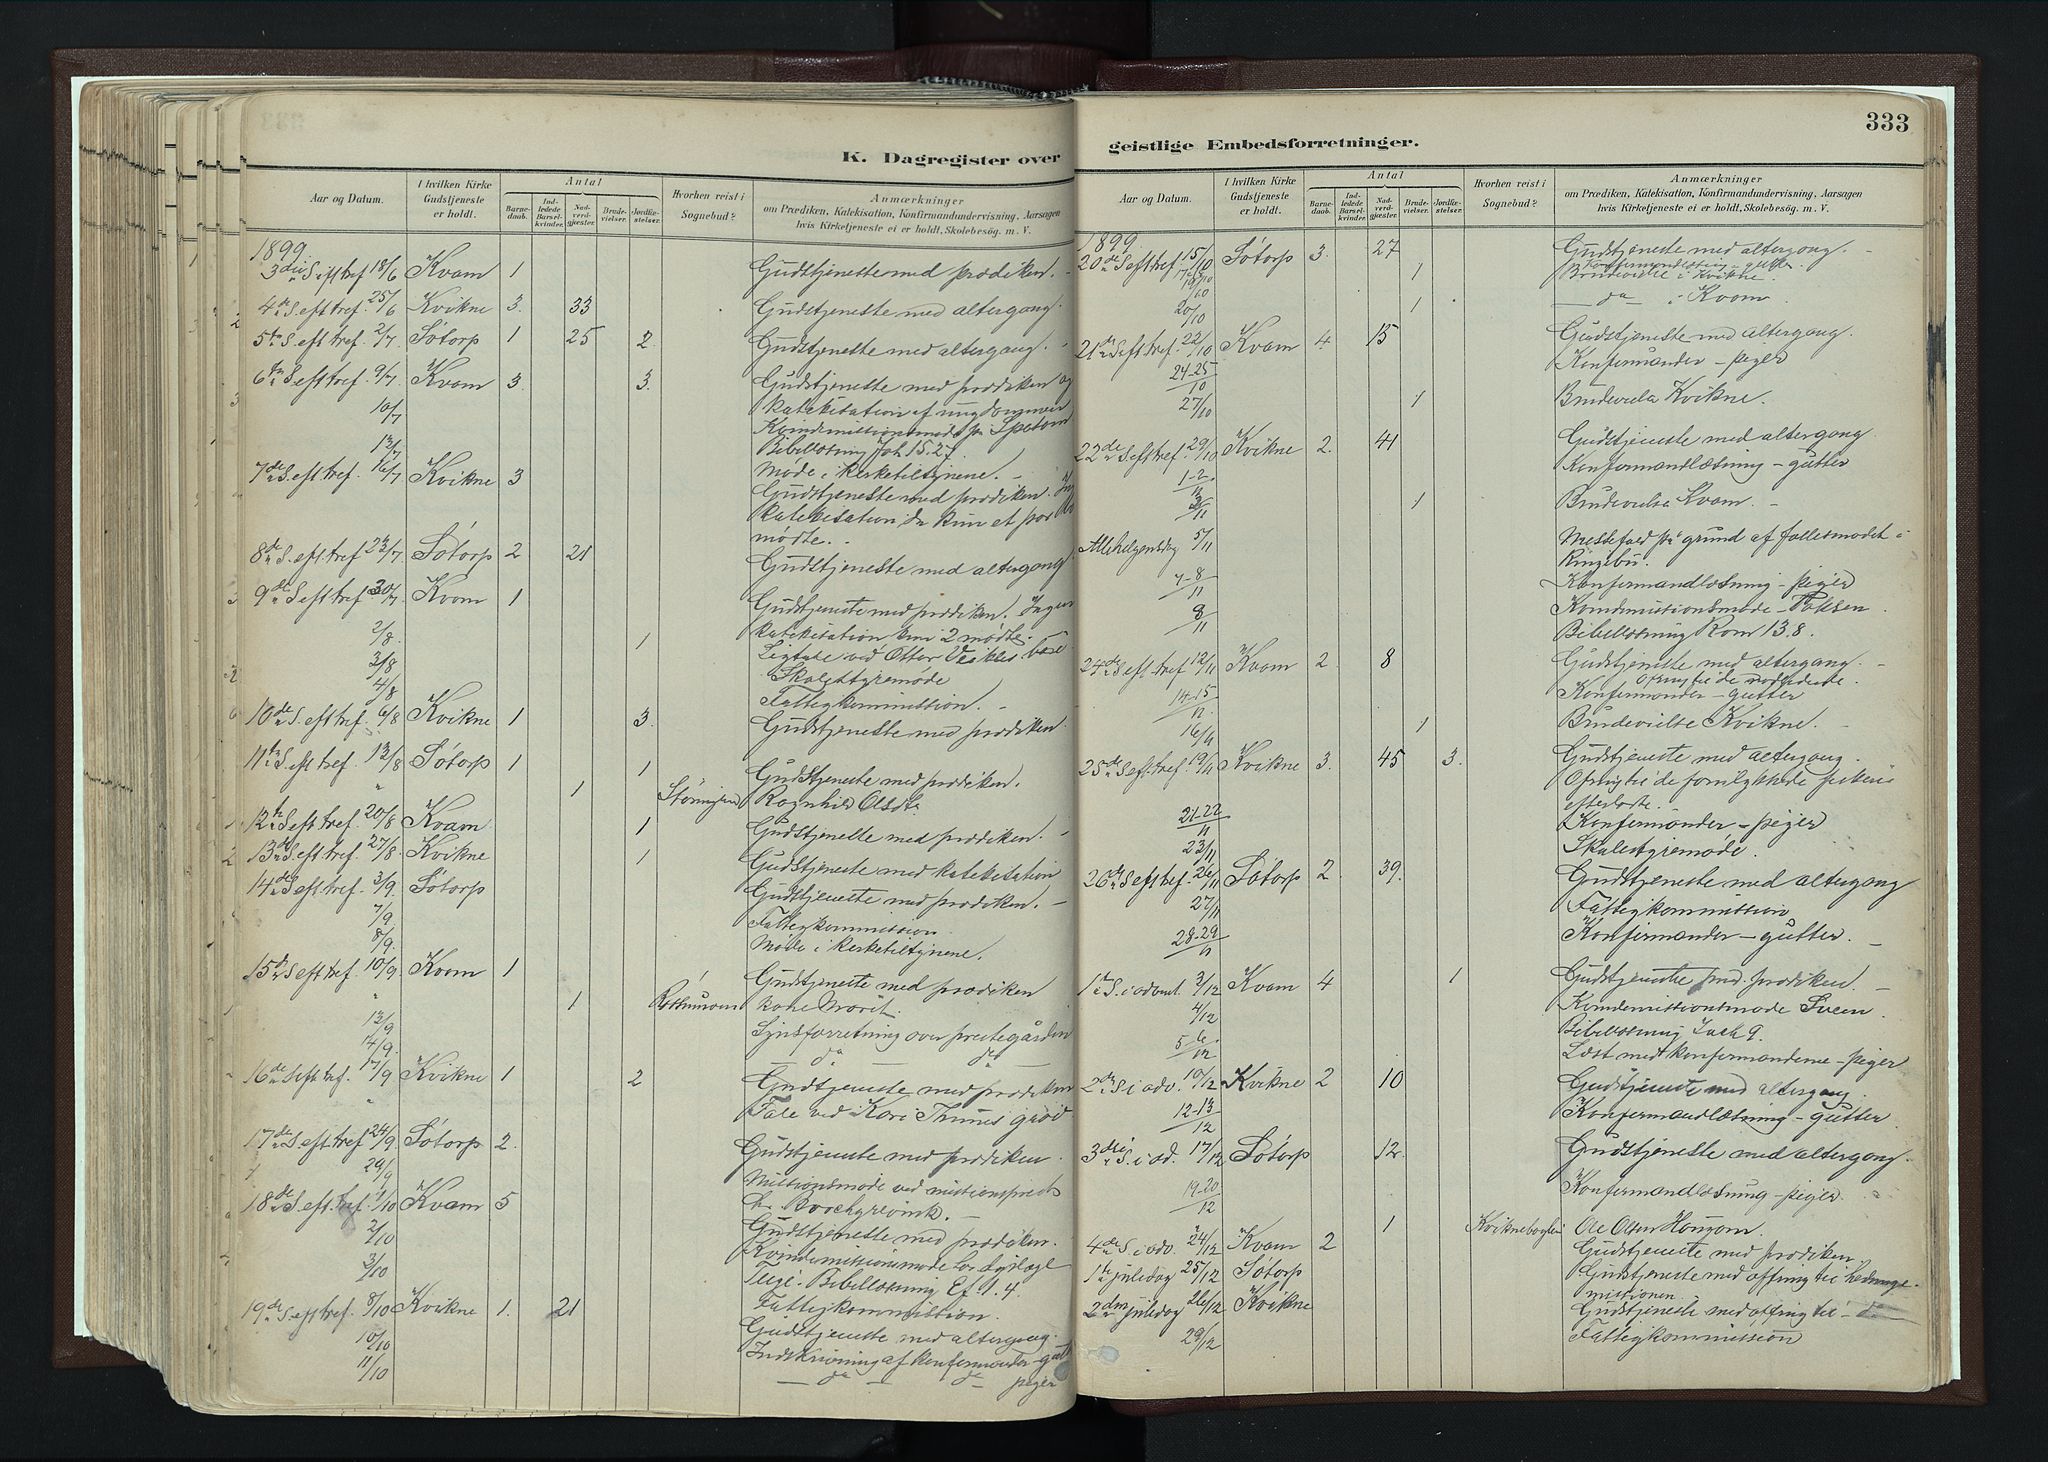 K. Dagregister over
Aar og Datum.
I hvilken Kirke Gudstjeneste er holdt.
Antal
Barnedaab.
Indledede Barselkvinder.
Nadverdgjæster.
Brudevielser.
Jordfæstelser.
Hvorhen reist i Sognebud?
Anmærkninger
om Prædiken, Katekisation, Konfirmandundervisning, Aarsagen
hvis Kirketjeneste ei er holdt, Skolebesøg. m. V.
1899.
3die S. eft. tref. 18/6 Kvam 1 Gudstjeneste med prædiken.
4de S. eft tref. 25/6 Kvikne 3. 33 Gudstjeneste med altergang.
5te S. eft tref. 2/7 Søtorp 1 25 2. Gudstjeneste med altergang.
6te S. eft tref. 9/7 Kvam 3. 3. Gudstjeneste med prædiken og
katekisation af ungdommen
10/7
Bibellæsning Joh 15.27.
13/7 Møde i
7de S. eft tref. 16/7 Kvikne 3 Gudstjeneste med prædiken.
katekisation da kun et par
mødte.
8de S. eft tref. 23/7 Søtorp 2 21 Gudstjeneste med altergang
9de S. eft tref 30/7 Kvam 1 Gudstjeneste med prædiken. Ingen
katekisation kun 2 mødte.
2/8. 1 Ligtale ved
3/8 Skolestyremøde
4/8 Fattigkommission.
10de S. eft tref. 6/8 Kvikne 1 3. Gudstjeneste med prædiken.
11te S. eft tref. 13/8 Søtorp 1 1 Gudstjeneste med prædiken.
" 1 Ragnhild Olsdtr
12te S eft tref. 20/8 Kvam 1 Gudstjeneste med prædiken.
13de S. eft tref. 27/8. Kvikne 1 Gudstjeneste med katekisation
14de S. eft tref. 3/9. Søtorp Gudstjeneste med prædiken.
7/9. Fattigkommission
8/9. Møde i
15de S eft tref. 10/9. Kvam 1 Gudstjeneste med prædiken
" 1
13/9 Synsforretning over prestegården
14/9. da da
16de S. eft tref. 17/9 Kvikne 1 2 Gudstjeneste med prædiken
" Tale ved Kari Thunes grav
17de S. eft tref 24/9. Søtorp 2. Gudstjeneste med prædiken.
29/9 Missionsmøde ved missionsprest
hr. Borchgrevink.
18de S. eft. tref. 1/10 Kvam 5 Gudstjeneste med prædiken.
2/10
Bibellæsning Ef. 1.4.
3/10 Fattigkommission.
19de S. eft tref. 8/10 Kvikne 1. 21 Gudstjeneste med altergang.
10/10 Indskrivning af konfirmander
11/10 da da piger
geistlige Embedsforretninger.
333
Aar og Datum.
I hvilken Kirke Gudstjeneste er holdt.
Antal
Barnedaab.
Indledede Barselkvinder.
Nadverdgjæster.
Brudevielser.
Jordfæstelser.
Hvorhen reist i Sognebud?
Anmærkninger
om Prædiken, Katekisation, Konfirmandundervisning, Aarsagen
hvis Kirketjeneste ei er holdt, Skolebesøg. m. V.
1899.
20de S. eft tref 15/10 Søtorp 3. 27 Gudstjeneste med altergang.
Konfirmandlæsning gutter.
19/10 1 Brudevielse i Kvikne.
20/10 1 da i Kvam
21de S eft tref. 22/10 Kvam 4. 15 Gudstjeneste med altergang.
24-25/10 Konfirmander - piger
27/10 1 Brudevielse Kvikne.
22de S. eft tref. 29/10 Kvikne 2. 41 Gudstjeneste med altergang.
1-2/11 Konfirmandlæsning - gutter
3/11 1 Brudevielse Kvam.
Allehelgensdag 5/11 Messefald på grund af fællesmødet i
Ringebu.
7-8/11 Konfirmandlæsning - piger
9/11
Bibellæsning Rom 13.8.
24de S. eft tref 12/11 Kvam 2. 8 Gudstjeneste med altergang.
14-15/11 Konfirmander - gutter
16/11 1 Brudevielse Kvikne.
25de S. eft tref. 19/11 Kvikne 3. 45 3. Gudstjeneste med altergang.
Ofring til de forulykkede
efterladte.
21-22/11 Konfirmander - piger
23/11 Skolestyremøde.
26de S eft tref. 26/11 Søtorp 2 39. Gudstjeneste med altergang
27/11 Fattigkommission
28-29/11 Konfirmander - gutter.
1te S. i advent. 3/12 Kvam 4 1 Gudstjeneste med prædiken.
4/12 Kvindemissionsmøde Sveen.
Bibellæsning Zach 9.
5-6/12 Læst med konfirmanderne - piger
2den S. i adv. 10/12 Kvikne 2 10 Gudstjeneste med altergang.
12-13/12 Konfirmandlæsning - gutter
3die S. i ad. 17/12 Søtorp 12. Gudstjeneste med altergang.
19-20/12 Konfirmandlæsning - piger.
1
4de S. i adv. 24/12 Kvam 2 Gudstjeneste med prædiken
1te juledag 25/12 Søtorp Gudstjeneste med offring til hedninge
missionen.
2den juledag 26/12 Kvikne Gudstjeneste med offring til - da
29/12 Fattigkommission